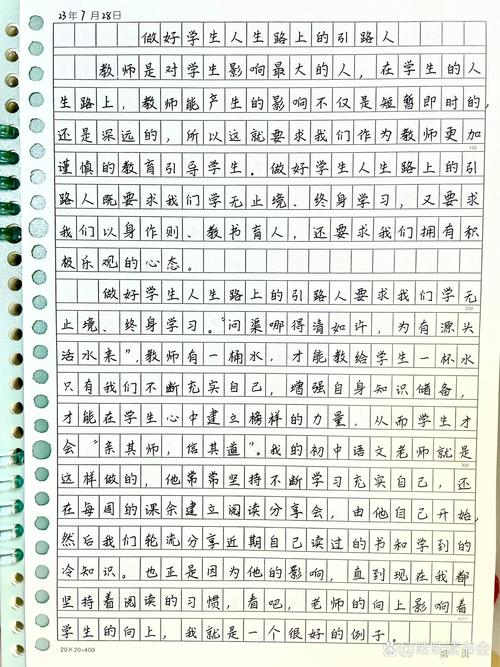 23年7月28日
做好学生人生路上的引路人
教师是对学生影响最大的人，在学生的人
生路上，教师能产生的影响不仅是短暂即时的，
还是深远的，所以这就要求我们作为教师更加
谨慎的教育引导学生。做好学生人生路上的引
路人既要求我们学无止境、终身学习，又要求
我们以身作则、教书育人，还要求我们拥有积
极乐观的心态。
做好学生人生路上的引路人要求我们学无
止境、终身学习。“问渠哪得清如许，为有源头
活水来”，教师有一桶水，才能教给学生一杯水
只有我们不断充实自己，增强自身知识储备，
才能在学生心中建立榜样的力量，从而学生才
会“亲其师，信其道”。我的初中语文老师就是
这样做的，他常常坚持不断学习充实自己，还
在每周的课余建立阅读分享会，由他自己开始，
然后我们轮流分享近期自己读过的书和学到的
冷知识。也正是因为他的影响，直到现在我都
坚持着阅读的习惯，看吧，老师的向上影响着
学生的向上，我就是一个很好的例子。
20×20=400
第 页